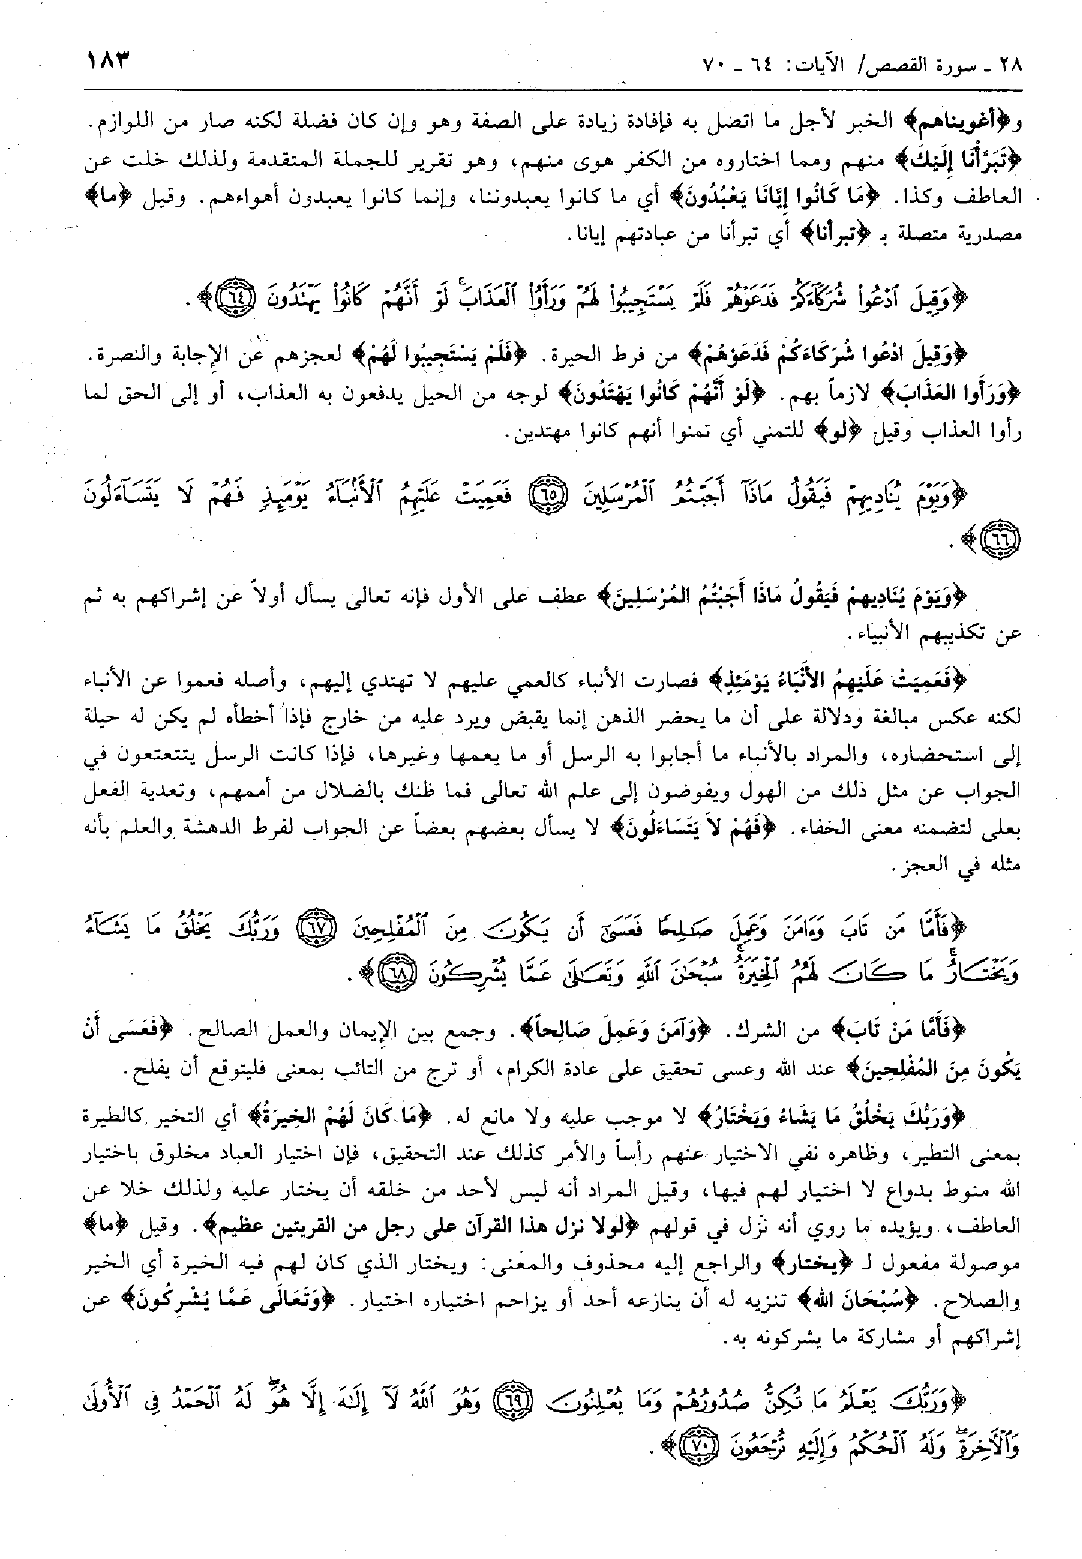 ٢٨ ـ سورة القصص/ الآيات: ٦٤ ـ ٧٠
١٨٣
و﴿أغويناهم﴾ الخبر لأجل ما اتصل به فإفادة زيادة على الصفة وهو وإن كان فضلة لكنه صار من اللوازم.
﴿تَبَرَّأْنَا إِلَيْكَ﴾ منهم ومما اختاروه من الكفر هوى منهم، وهو تقرير للجملة المتقدمة ولذلك خلت عن
العاطف وكذا. ﴿مَا كَانُوا إِيَّانَا يَعْبُدُونَ﴾ أي ما كانوا يعبدوننا، وإنما كانوا يعبدون أهواءهم. وقيل ﴿ما﴾
مصدرية متصلة بـ ﴿تبرأنا﴾ أي تبرأنا من عبادتهم إيانا.
﴿وَقِيلَ ٱدْعُوا۟ شُرَكَآءَكُمْ فَدَعَوْهُمْ فَلَمْ يَسْتَجِيبُوا۟ لَهُمْ وَرَأَوُا۟ ٱلْعَذَابَ ۚ لَوْ أَنَّهُمْ كَانُوا۟ يَهْتَدُونَ ﴿٦٤﴾﴾.
﴿وَقِيلَ ادْعُوا شُرَكَاءَكُمْ فَدَعَوْهُمْ﴾ من فرط الحيرة. ﴿فَلَمْ يَسْتَجِيبُوا لَهُمْ﴾ لعجزهم عن الإجابة والنصرة.
﴿وَرَأَوا العَذَابَ﴾ لازماً بهم. ﴿لَوْ أَنَّهُمْ كَانُوا يَهْتَدُونَ﴾ لوجه من الحيل يدفعون به العذاب، أو إلى الحق لما
رأوا العذاب وقيل ﴿لو﴾ للتمني أي تمنوا أنهم كانوا مهتدين.
﴿وَيَوْمَ يُنَادِيهِمْ فَيَقُولُ مَاذَآ أَجَبْتُمُ ٱلْمُرْسَلِينَ ﴿٦٥﴾ فَعَمِيَتْ عَلَيْهِمُ ٱلْأَنۢبَآءُ يَوْمَئِذٍ فَهُمْ لَا يَتَسَآءَلُونَ
﴿٦٦﴾﴾.
﴿وَيَوْمَ يُنَادِيهِمْ فَيَقُولُ مَاذَا أَجَبْتُمُ المُرْسَلِينَ﴾ عطف على الأول فإنه تعالى يسأل أولاً عن إشراكهم به ثم
عن تكذيبهم الأنبياء.
﴿فَعَمِيَتْ عَلَيْهِمُ الأَنْبَاءُ يَوْمَئِذٍ﴾ فصارت الأنباء كالعمي عليهم لا تهتدي إليهم، وأصله فعموا عن الأنباء
لكنه عكس مبالغة ودلالة على أن ما يحضر الذهن إنما يقبض ويرد عليه من خارج فإذا أخطأه لم يكن له حيلة
إلى استحضاره، والمراد بالأنباء ما أجابوا به الرسل أو ما يعمها وغيرها، فإذا كانت الرسل يتتعتعون في
الجواب عن مثل ذلك من الهول ويفوضون إلى علم الله تعالى فما ظنك بالضلال من أممهم، وتعدية الفعل
بعلى لتضمنه معنى الخفاء. ﴿فَهُمْ لاَ يَتَسَاءَلُونَ﴾ لا يسأل بعضهم بعضاً عن الجواب لفرط الدهشة والعلم بأنه
مثله في العجز.
﴿فَأَمَّا مَن تَابَ وَءَامَنَ وَعَمِلَ صَـٰلِحًا فَعَسَىٰٓ أَن يَكُونَ مِنَ ٱلْمُفْلِحِينَ ﴿٦٧﴾ وَرَبُّكَ يَخْلُقُ مَا يَشَآءُ
وَيَخْتَارُ ۗ مَا كَانَ لَهُمُ ٱلْخِيَرَةُ ۚ سُبْحَـٰنَ ٱللَّهِ وَتَعَـٰلَىٰ عَمَّا يُشْرِكُونَ ﴿٦٨﴾﴾.
﴿فَأَمَّا مَنْ تَابَ﴾ من الشرك. ﴿وَآمَنَ وَعَمِلَ صَالِحاً﴾. وجمع بين الإيمان والعمل الصالح. ﴿فَعَسَى أَنْ
يَكُونَ مِنَ المُفْلِحِينَ﴾ عند الله وعسى تحقيق على عادة الكرام، أو ترج من التائب بمعنى فليتوقع أن يفلح.
﴿وَرَبُّكَ يَخْلُقُ مَا يَشَاءُ وَيَخْتَارُ﴾ لا موجب عليه ولا مانع له. ﴿مَا كَانَ لَهُمْ الخِيرَةُ﴾ أي التخير كالطيرة
بمعنى التطير، وظاهره نفي الاختيار عنهم رأساً والأمر كذلك عند التحقيق، فإن اختيار العباد مخلوق باختيار
الله منوط بدواع لا اختيار لهم فيها، وقيل المراد أنه ليس لأحد من خلقه أن يختار عليه ولذلك خلا عن
العاطف، ويؤيده ما روي أنه نزل في قولهم ﴿لولا نزل هذا القرآن على رجل من القريتين عظيم﴾. وقيل ﴿ما﴾
موصولة مفعول لـ ﴿يختار﴾ والراجع إليه محذوف والمعنى: ويختار الذي كان لهم فيه الخيرة أي الخير
والصلاح. ﴿سُبْحَانَ الله﴾ تنزيه له أن ينازعه أحد أو يزاحم اختياره اختيار. ﴿وَتَعَالَى عَمَّا يُشْرِكُونَ﴾ عن
إشراكهم أو مشاركة ما يشركونه به.
﴿وَرَبُّكَ يَعْلَمُ مَا تُكِنُّ صُدُورُهُمْ وَمَا يُعْلِنُونَ ﴿٦٩﴾ وَهُوَ ٱللَّهُ لَآ إِلَـٰهَ إِلَّا هُوَ ۖ لَهُ ٱلْحَمْدُ فِى ٱلْأُولَىٰ
وَٱلْـَٔاخِرَةِ ۖ وَلَهُ ٱلْحُكْمُ وَإِلَيْهِ تُرْجَعُونَ ﴿٧٠﴾﴾.